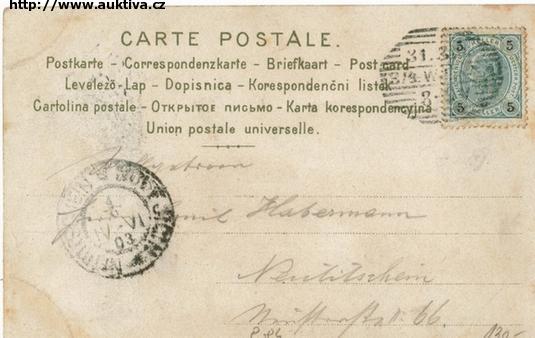 http://www.auktiva.cz
CARTE POSTALE.
Postkarte - Correspondenzkarte - Briefkaart - Post card
Levelező-Lap - Dopisnica - Korespondenční lístek
Cartolina postale - Открытое письмо - Karta korespondencyjna
Union postale universelle.
5 5
5 5
31.3
3/4.W
Habermann
Neutitschein
66.
NEUTITSCHEIN NOVÝ JIČÍN
IV-VI
03
130-